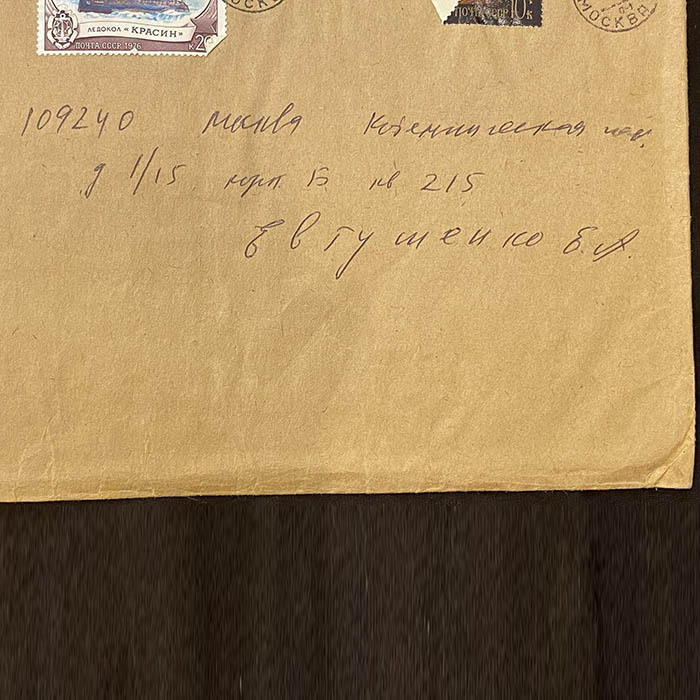 МОСКВА
ЛЕДОКОЛ «КРАСИН»
ПОЧТА СССР 1976
ПОЧТА СССР 10к
МОСКВА
109240 Москва Котельническая наб.
д 1/15 корп Б кв 215
Евтушенко Е.А.